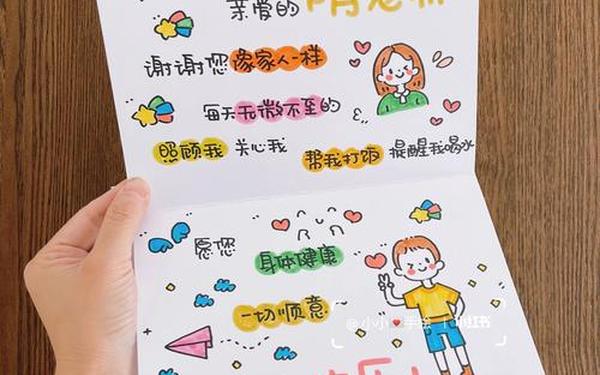 亲爱的
谢谢您像家人一样
每天无微不至的
照顾我 关心我 帮我打饭 提醒我喝水
愿您
身体健康
一切顺意
@小小❤手绘 小红书